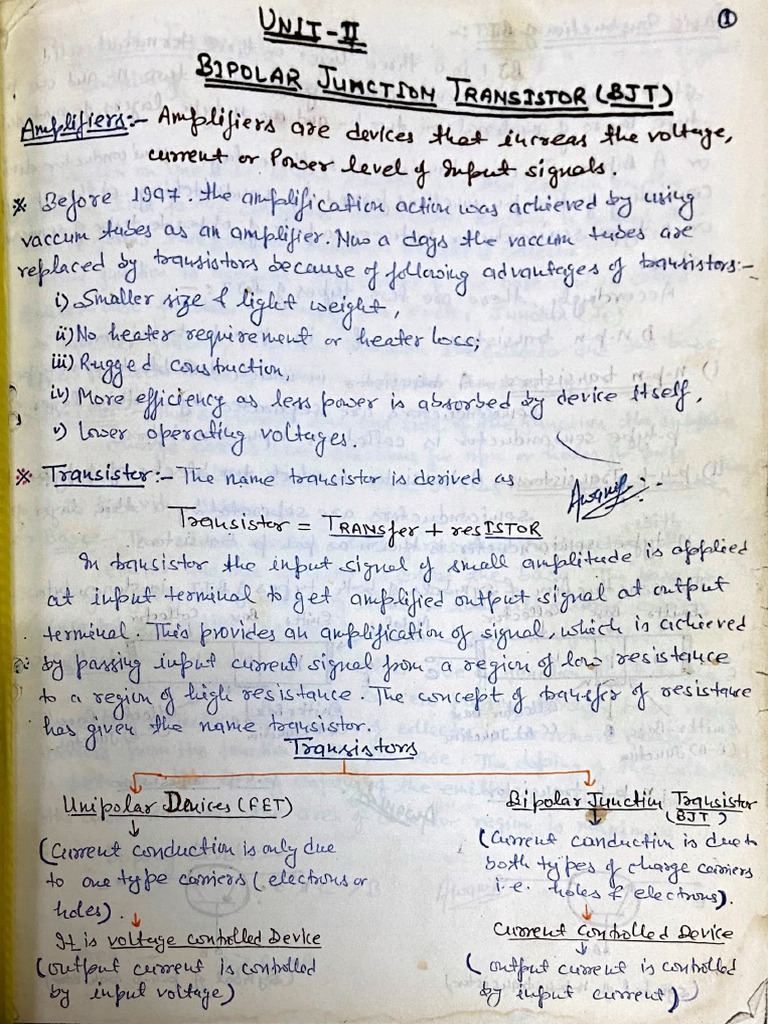 ①
UNIT-II
BIPOLAR JUNCTION TRANSISTOR (BJT)
Amplifiers:- Amplifiers are devices that increas the voltage,
current or Power level of Input signals.
* Before 1947. the amplification action was achieved by using
vaccum tubes as an amplifier. Now a days the vaccum tubes are
replaced by transistors because of following advantages of transistors:-
i) Smaller size & light weight,
ii) No heater requirement or heater loss;
iii) Rugged construction,
iv) More efficiency as less power is absorbed by device itself,
v) Lower operating voltages.
* Transistor:- The name transistor is derived as
Transistor = TRANSfer + resISTOR
In transistor the input signal of small amplitude is applied
at input terminal to get amplified output signal at output
terminal. This provides an amplification of signal, which is achieved
by passing input current signal from a region of low resistance
to a region of high resistance. The concept of transfer of resistance
has given the name transistor.
Transistors
Unipolar Devices (FET)
(Current conduction is only due
to one type carriers (electrons or
holes).
It is voltage controlled Device
(output current is controlled
by input voltage)
Bipolar Junction Transistor
(BJT)
(Current conduction is due to
both types of charge carriers
i.e. holes & electrons).
Current Controlled Device
(output current is controlled
by input current)